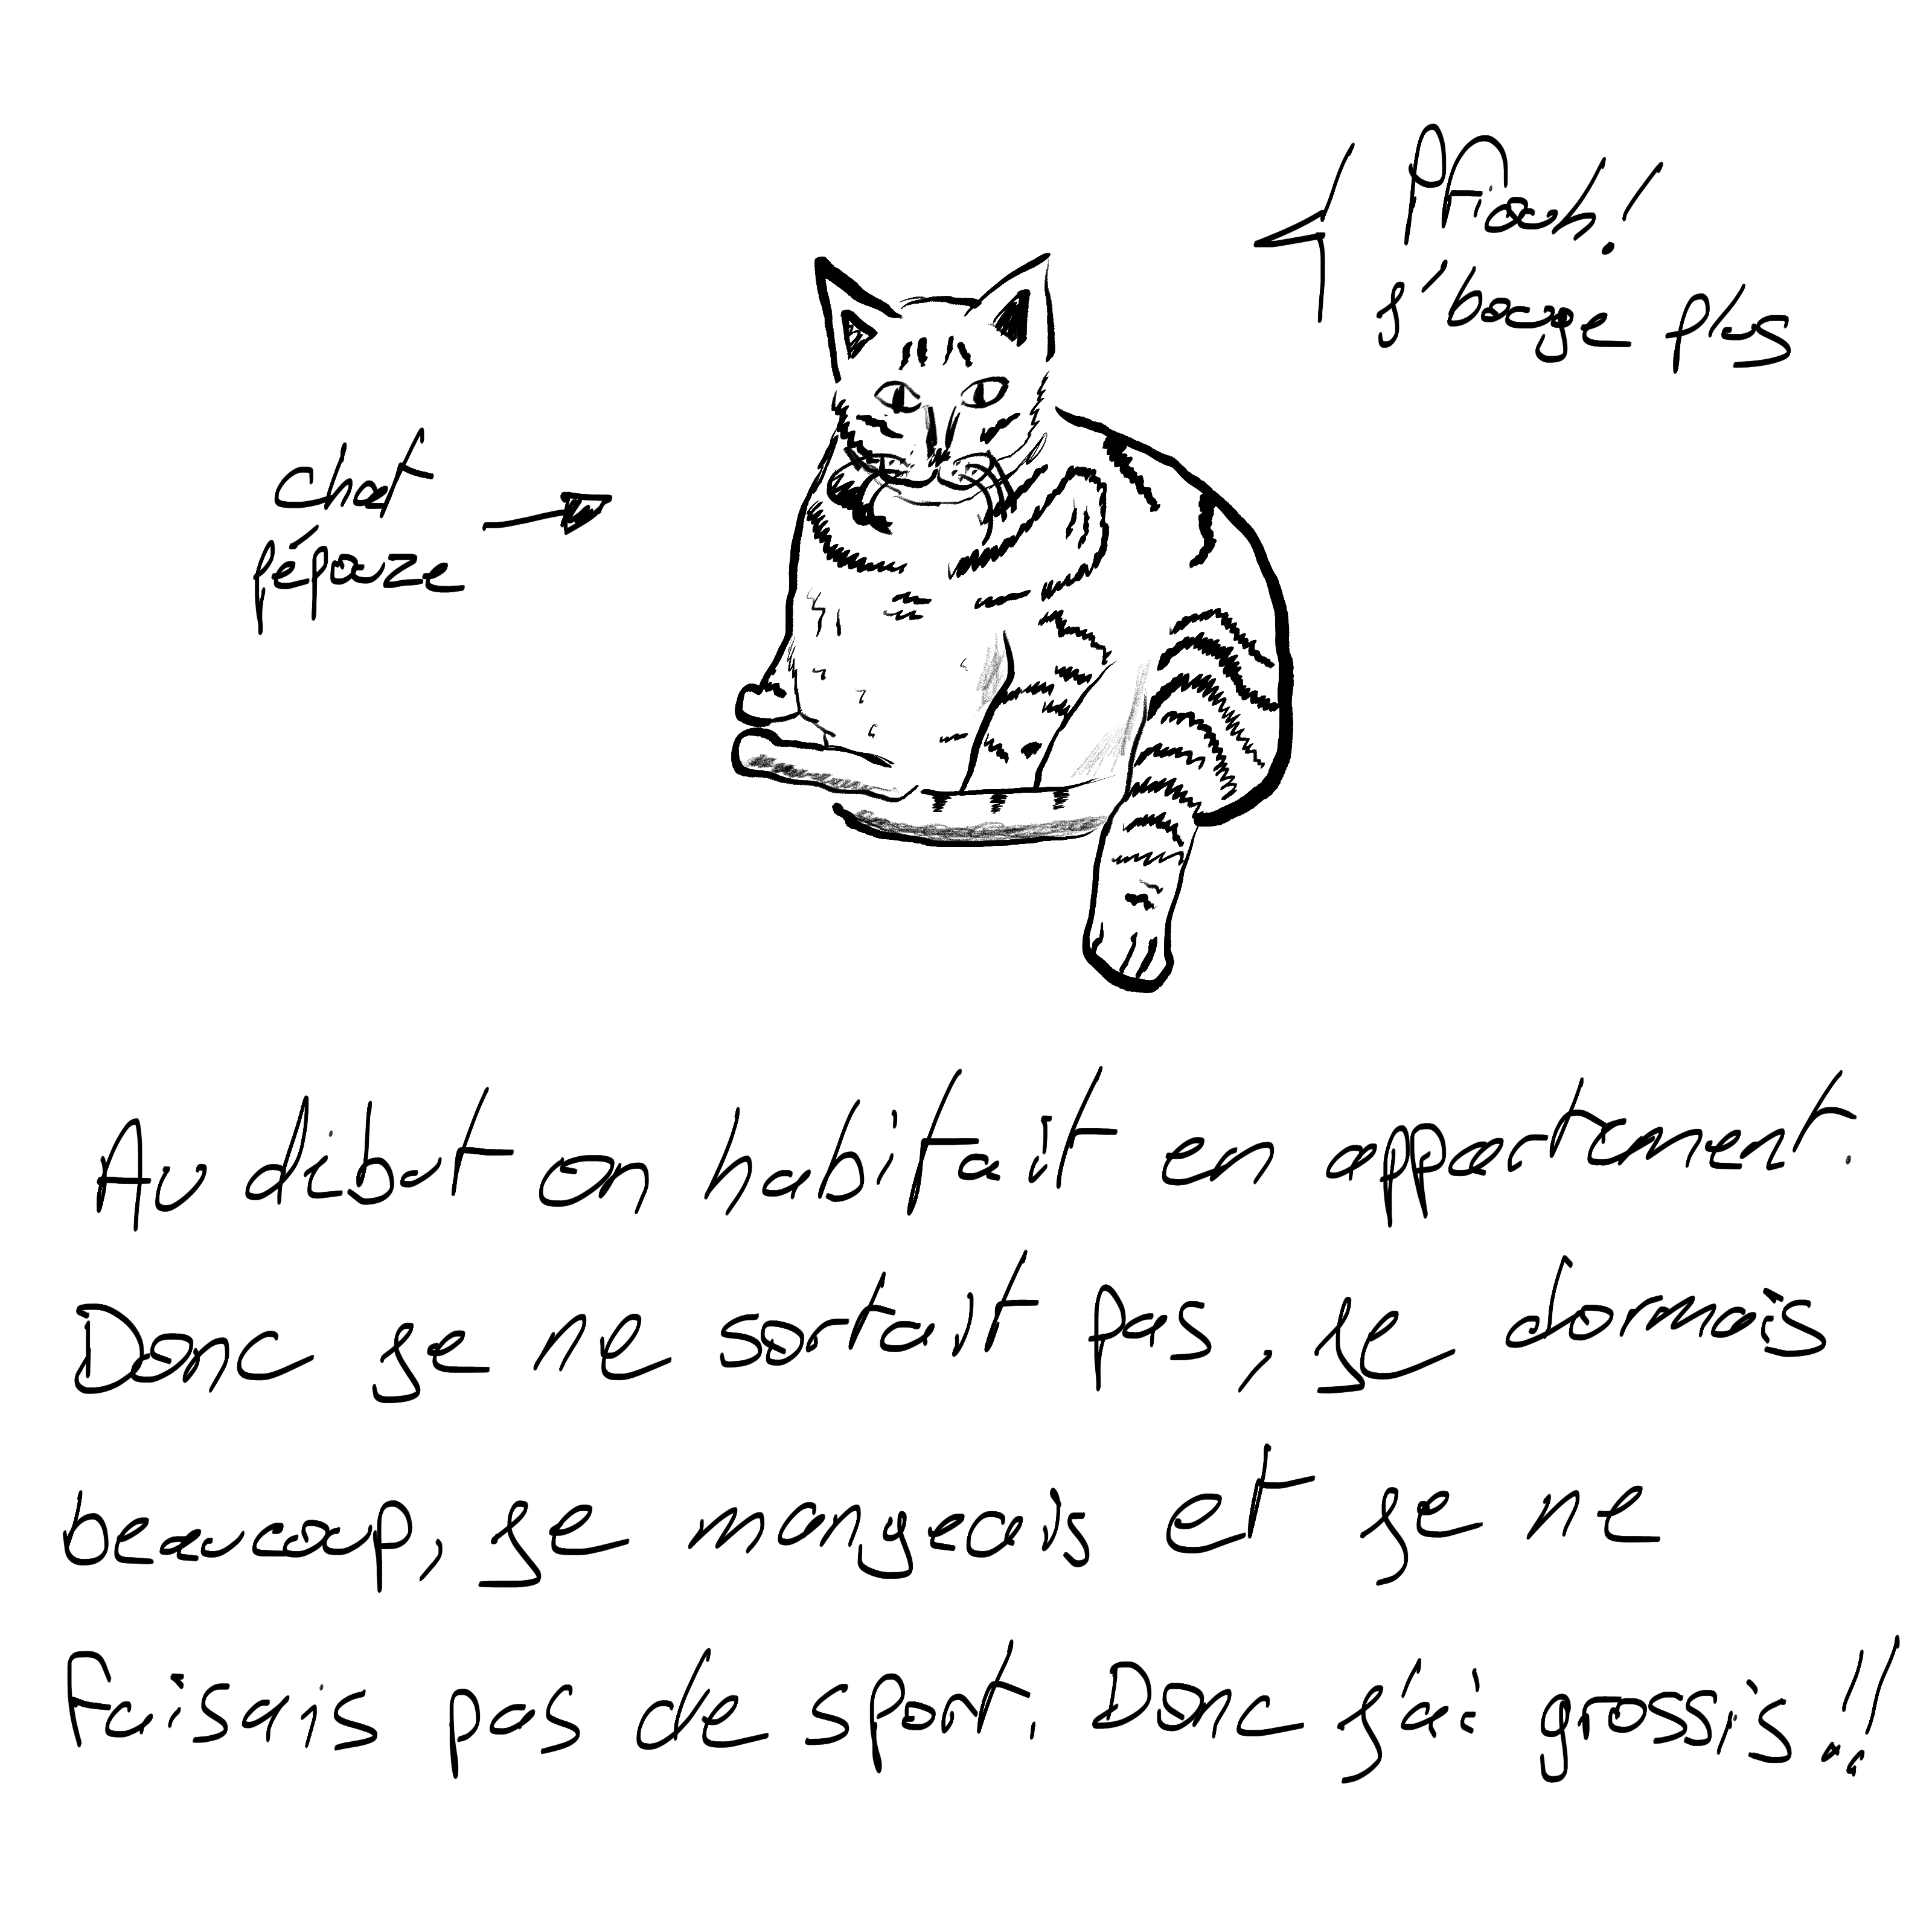 Pfiouh!
j'bouge plus
chat
pépouze
Au début on habitait en appartement.
Donc je ne sortait pas, je dormais
beaucoup, je mangeais et je ne
faisais pas de sport. Donc j'ai grossis!!